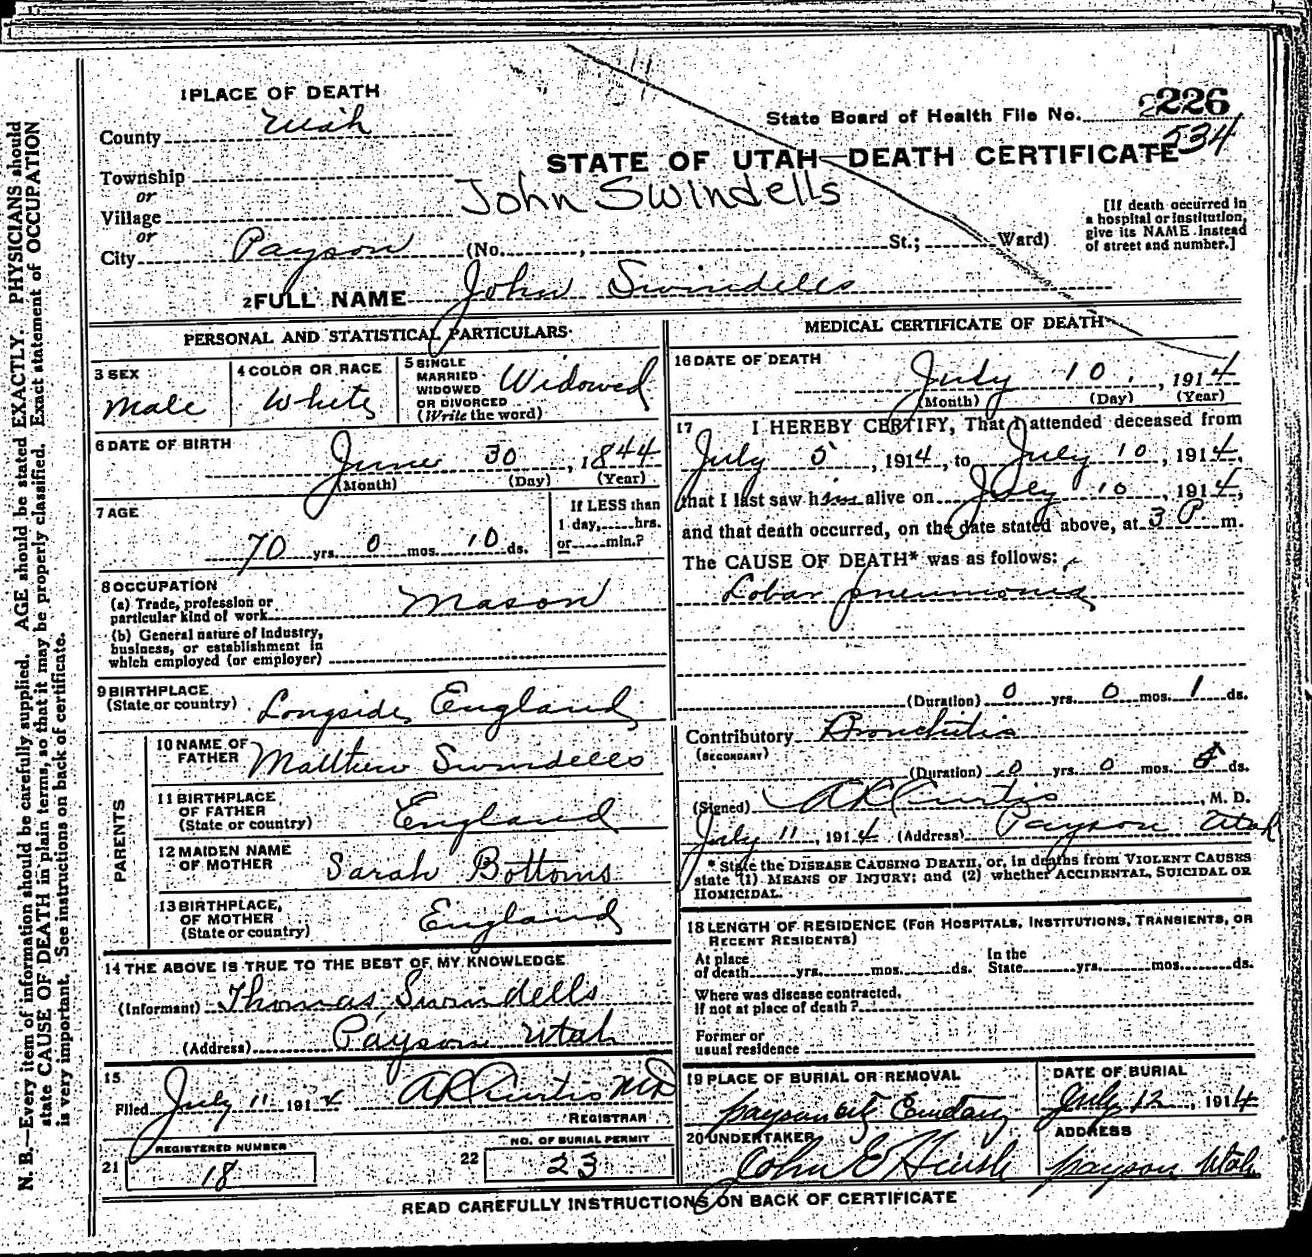 1 PLACE OF DEATH
County Utah
State Board of Health File No. 2226
534
Township
STATE OF UTAH—DEATH CERTIFICATE
or
John Swindells
Village
or
City Payson (No. , St.; Ward)
[If death occurred in
a hospital or institution,
give its NAME instead
of street and number.]
2 FULL NAME John Swindells
PERSONAL AND STATISTICAL PARTICULARS
3 SEX
Male
4 COLOR OR RACE
White
5 SINGLE
MARRIED
WIDOWED
OR DIVORCED
(Write the word)
Widowed
6 DATE OF BIRTH
June 30, 1844
(Month) (Day) (Year)
7 AGE
70 yrs. 0 mos. 10 ds.
If LESS than
1 day, hrs.
or min.?
8 OCCUPATION
(a) Trade, profession or
particular kind of work Mason
(b) General nature of industry,
business, or establishment in
which employed (or employer)
9 BIRTHPLACE
(State or country) Longside, England
PARENTS
10 NAME OF
FATHER Matthew Swindells
11 BIRTHPLACE
OF FATHER
(State or country) England
12 MAIDEN NAME
OF MOTHER Sarah Bottoms
13 BIRTHPLACE
OF MOTHER
(State or country) England
14 THE ABOVE IS TRUE TO THE BEST OF MY KNOWLEDGE
(Informant) Thomas Swindells
(Address) Payson Utah
15
Filed July 11 1914 A R Curtis MD
REGISTRAR
REGISTERED NUMBER
21 18
NO. OF BURIAL PERMIT
22 23
MEDICAL CERTIFICATE OF DEATH
16 DATE OF DEATH
July 10, 1914
(Month) (Day) (Year)
17 I HEREBY CERTIFY, That I attended deceased from
July 5, 1914, to July 10, 1914,
that I last saw him alive on July 10, 1914,
and that death occurred, on the date stated above, at 3 P m.
The CAUSE OF DEATH* was as follows:
Lobar pneumonia
(Duration) 0 yrs. 0 mos. 1 ds.
Contributory Bronchitis
(SECONDARY)
(Duration) 0 yrs. 0 mos. 5 ds.
(Signed) A R Curtis, M. D.
July 11, 1914 (Address) Payson Utah
* State the DISEASE CAUSING DEATH, or, in deaths from VIOLENT CAUSES
state (1) MEANS OF INJURY; and (2) whether ACCIDENTAL, SUICIDAL OR
HOMICIDAL.
18 LENGTH OF RESIDENCE (FOR HOSPITALS, INSTITUTIONS, TRANSIENTS, OR
RECENT RESIDENTS)
At place
of death yrs. mos. ds.
In the
State yrs. mos. ds.
Where was disease contracted,
if not at place of death?
Former or
usual residence
19 PLACE OF BURIAL OR REMOVAL
Payson City Cemetary
DATE OF BURIAL
July 12, 1914
20 UNDERTAKER
John E Huish
ADDRESS
Payson Utah
READ CAREFULLY INSTRUCTIONS ON BACK OF CERTIFICATE
N. B.—Every item of information should be carefully supplied. AGE should be stated EXACTLY. PHYSICIANS should
state CAUSE OF DEATH in plain terms, so that it may be properly classified. Exact statement of OCCUPATION
is very important. See instructions on back of certificate.